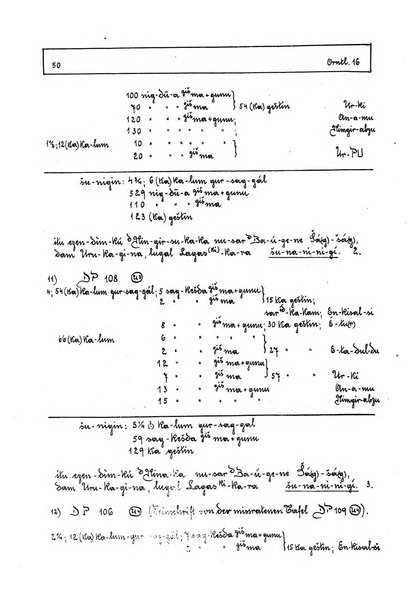 50 Orntl. 16
100 nig-dū-a ᵍⁱˢma+gunu
70 " " " ᵍⁱˢma } 54 (Ka) geštin Ur-ki
120 " " " ᵍⁱˢma+gunu An-a-mu
130 " " " " Nimgir-abzu
12(Ka) Ka-lum 10 " " " "
20 " " ᵍⁱˢma Ur-PU
šu-nigin: 6(Ka) Ka-lum gur-sag-gál
529 nig-dū-a ᵍⁱˢma+gunu
110 " " ᵍⁱˢma
123 (Ka) geštin
itu ezen-dim-kú ᵈNin-gir-su-ka-ka nu-sar ᵈBa-ú-ge-ne Šá(g)-šá(g),
dam Uru-ka-gi-na, lugal Lagaš(ᵏⁱ)-ka-ra šu-na-ni-ni-gi. 2.
11) DP 108
4; 54(Ka) Ka-lum gur-sag-gál; 5 sag-kešda ᵍⁱˢma+gunu
2 " " ᵍⁱˢma } 15 Ka geštin;
sar ᵈ-kakam; En-ki-sal-si
8 " " ᵍⁱˢma+gunu; 30 Ka geštin; E-tur
66 (Ka) Ka-lum 6 " " "
2 " " ᵍⁱˢma } 27 " " E-ta-dul-du
12 " " ᵍⁱˢma+gunu
7 " " ᵍⁱˢma } 57 " " Ur-ki
13 " " ᵍⁱˢma+gunu An-a-mu
15 " " " Nimgir-abzu
šu-nigin: Ka-lum gur-sag-gal
59 sag-kešda ᵍⁱˢma+gunu
129 Ka geštin
itu ezen-dim-kú ᵈNina-ka nu-sar ᵈBa-ú-ge-ne Šá(g)-šá(g),
dam Uru-ka-gi-na, lugal Lagaš ᵏⁱ-ka-ra šu-na-ni-ni-gi. 3.
12) DP 106 (Reinschrift von der missratenen Tafel DP 109).
12(Ka) Ka-lum gur-sag-gal; 7 sag-kešda ᵍⁱˢma+gunu
2 " " ᵍⁱˢma } 15 Ka geštin; En-ki-sal-si